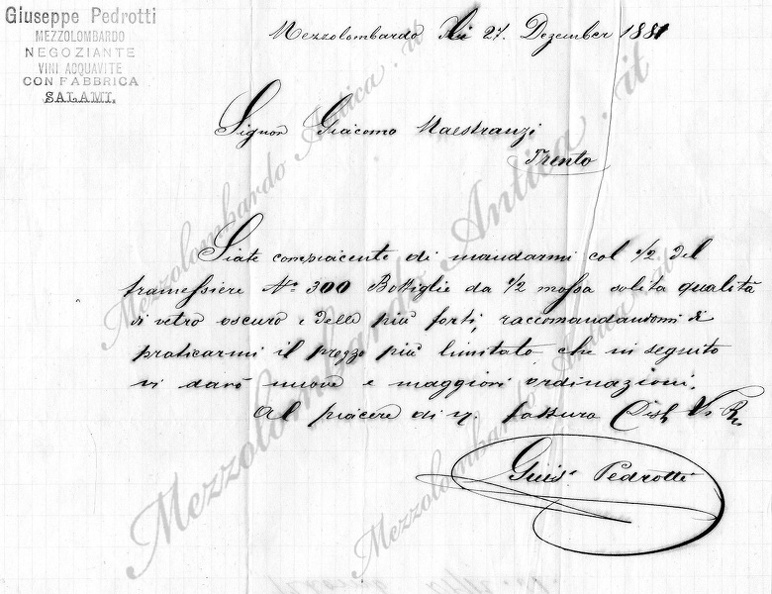 Giuseppe Pedrotti
MEZZOLOMBARDO
NEGOZIANTE
VINI ACQUAVITE
CON FABBRICA
SALAMI.
Mezzolombardo li 27. Dezember 1881
Signor Giacomo Maestranzi
Trento
Siate compiacente di mandarmi col 1/2 del
tramessiere Nº 300 Bottiglie da 1/2 mossa solita qualità
di vetro oscuro e delle più forti, raccomandandomi di
praticarmi il prezzo più limitato che in seguito
vi darò nuove e maggiori ordinazioni.
Al piacere di
Gius. Pedrotti
Mezzolombardo Antica.it
Mezzolombardo Antica.it
Mezzolombardo Antica.it